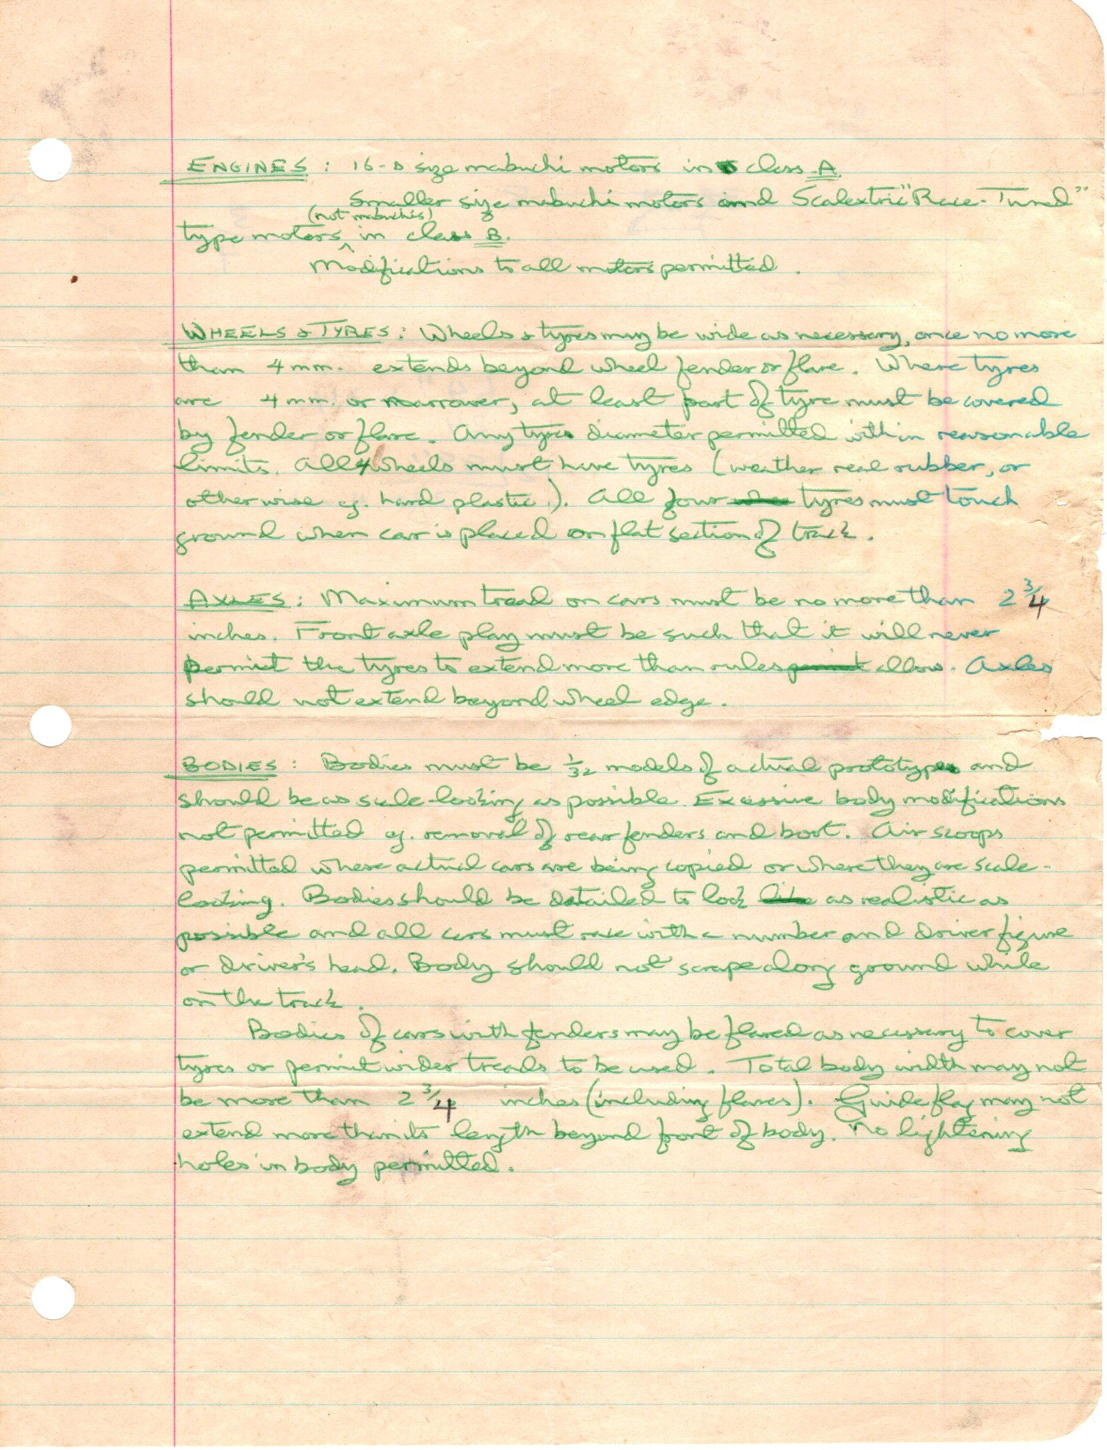 ENGINES: 16-D size mabuchi motors in class A.
Smaller size mabuchi motors and Scalextric "Race-Tuned"
(not mabuchis)
type motors in class B.
Modifications to all motors permitted.
WHEELS & TYRES: Wheels & tyres may be wide as necessary, once no more
than 4 mm. extends beyond wheel fender or flare. Where tyres
are 4 mm. or narrower, at least part of tyre must be covered
by fender or flare. Any tyre diameter permitted within reasonable
limits. All 4 wheels must have tyres (weather real rubber, or
otherwise eg. hard plastic.). All four tyres must touch
ground when car is placed on flat section of track.
AXLES: Maximum tread on cars must be no more than 2 3/4
inches. Front axle play must be such that it will never
permit the tyres to extend more than rules permit allow. Axles
should not extend beyond wheel edge.
BODIES: Bodies must be 1/32 models of actual prototypes and
should be as scale-looking as possible. Excessive body modifications
not permitted eg. removal of rear fenders and boot. Air scoops
permitted where actual cars are being copied or where they are scale-
looking. Bodies should be detailed to look like as realistic as
possible and all cars must race with a number and driver figure
or driver's head. Body should not scrape along ground while
on the track.
Bodies of cars with fenders may be flared as necessary to cover
tyres or permit wider treads to be used. Total body width may not
be more than 2 3/4 inches (including flares). Guide flag may not
extend more than its length beyond front of body. No lightening
holes in body permitted.